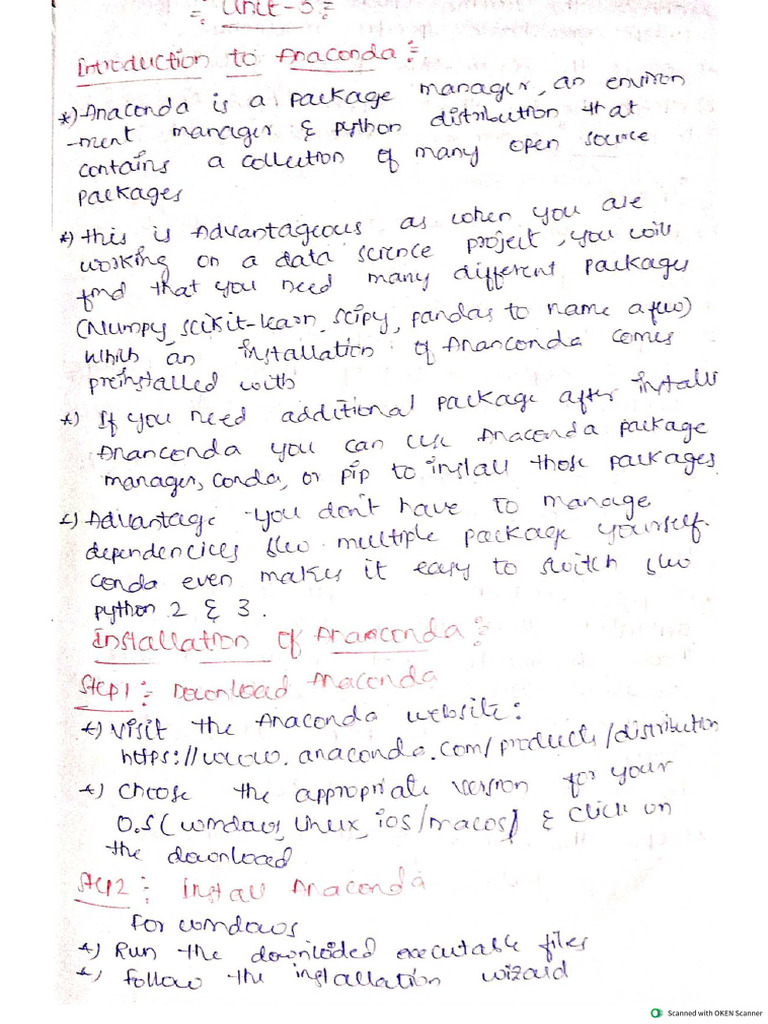 Unit-5:
Introduction to Anaconda:
*) Anaconda is a package manager, an environ
-ment manager & python distribution that
contains a collection of many open source
packages
*) this is Advantageous as when you are
working on a data science project, you will
find that you need many different packages
(Numpy, scikit-learn, scipy, pandas to name a few)
which an installation of Ananconda comes
preinstalled with
*) If you need additional package after installs
Ananconda you can use Anaconda package
manager, conda, or pip to install those packages.
*) Advantage - you don't have to manage
dependencies b/w multiple package yourself.
conda even makes it easy to switch b/w
python 2 & 3.
Installation of Ananconda:
Step1 : Download Anaconda
*) visit the Anaconda website:
https://www.anaconda.com/products/distribution
*) choose the appropriate version for your
O.S (windows, linux, ios/macos) & click on
the download
Step2 : Install Anaconda
For windows
*) Run the downloded executable files
*) follow the installation wizard
Scanned with OKEN Scanner